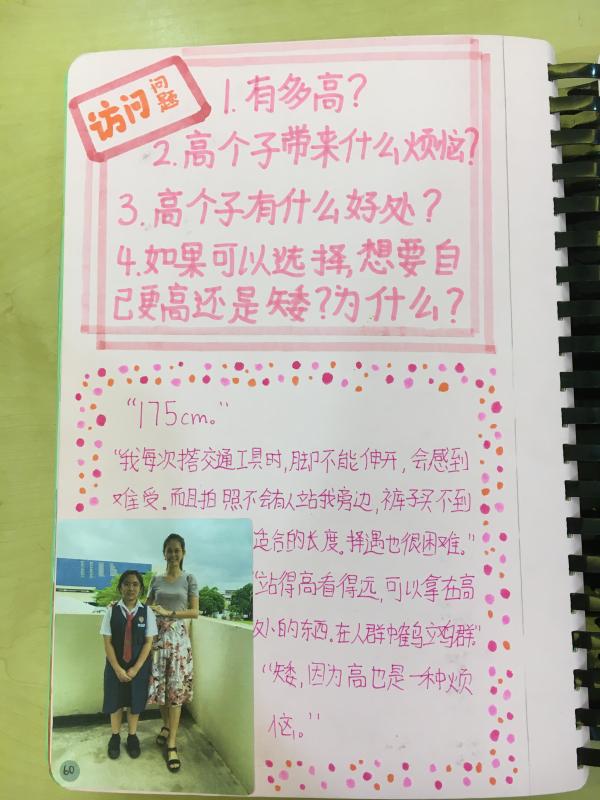 访问问题
1. 有多高?
2. 高个子带来什么烦恼?
3. 高个子有什么好处?
4. 如果可以选择,想要自
己更高还是矮?为什么?
“175cm。”
“我每次搭交通工具时,脚不能伸开,会感到
难受.而且拍照不会有人站我旁边,裤子买不到
适合的长度.择遇也很困难。”
“站得高看得远,可以拿在高
处的东西.在人群中鹤立鸡群”
“矮,因为高也是一种烦
恼。”
60